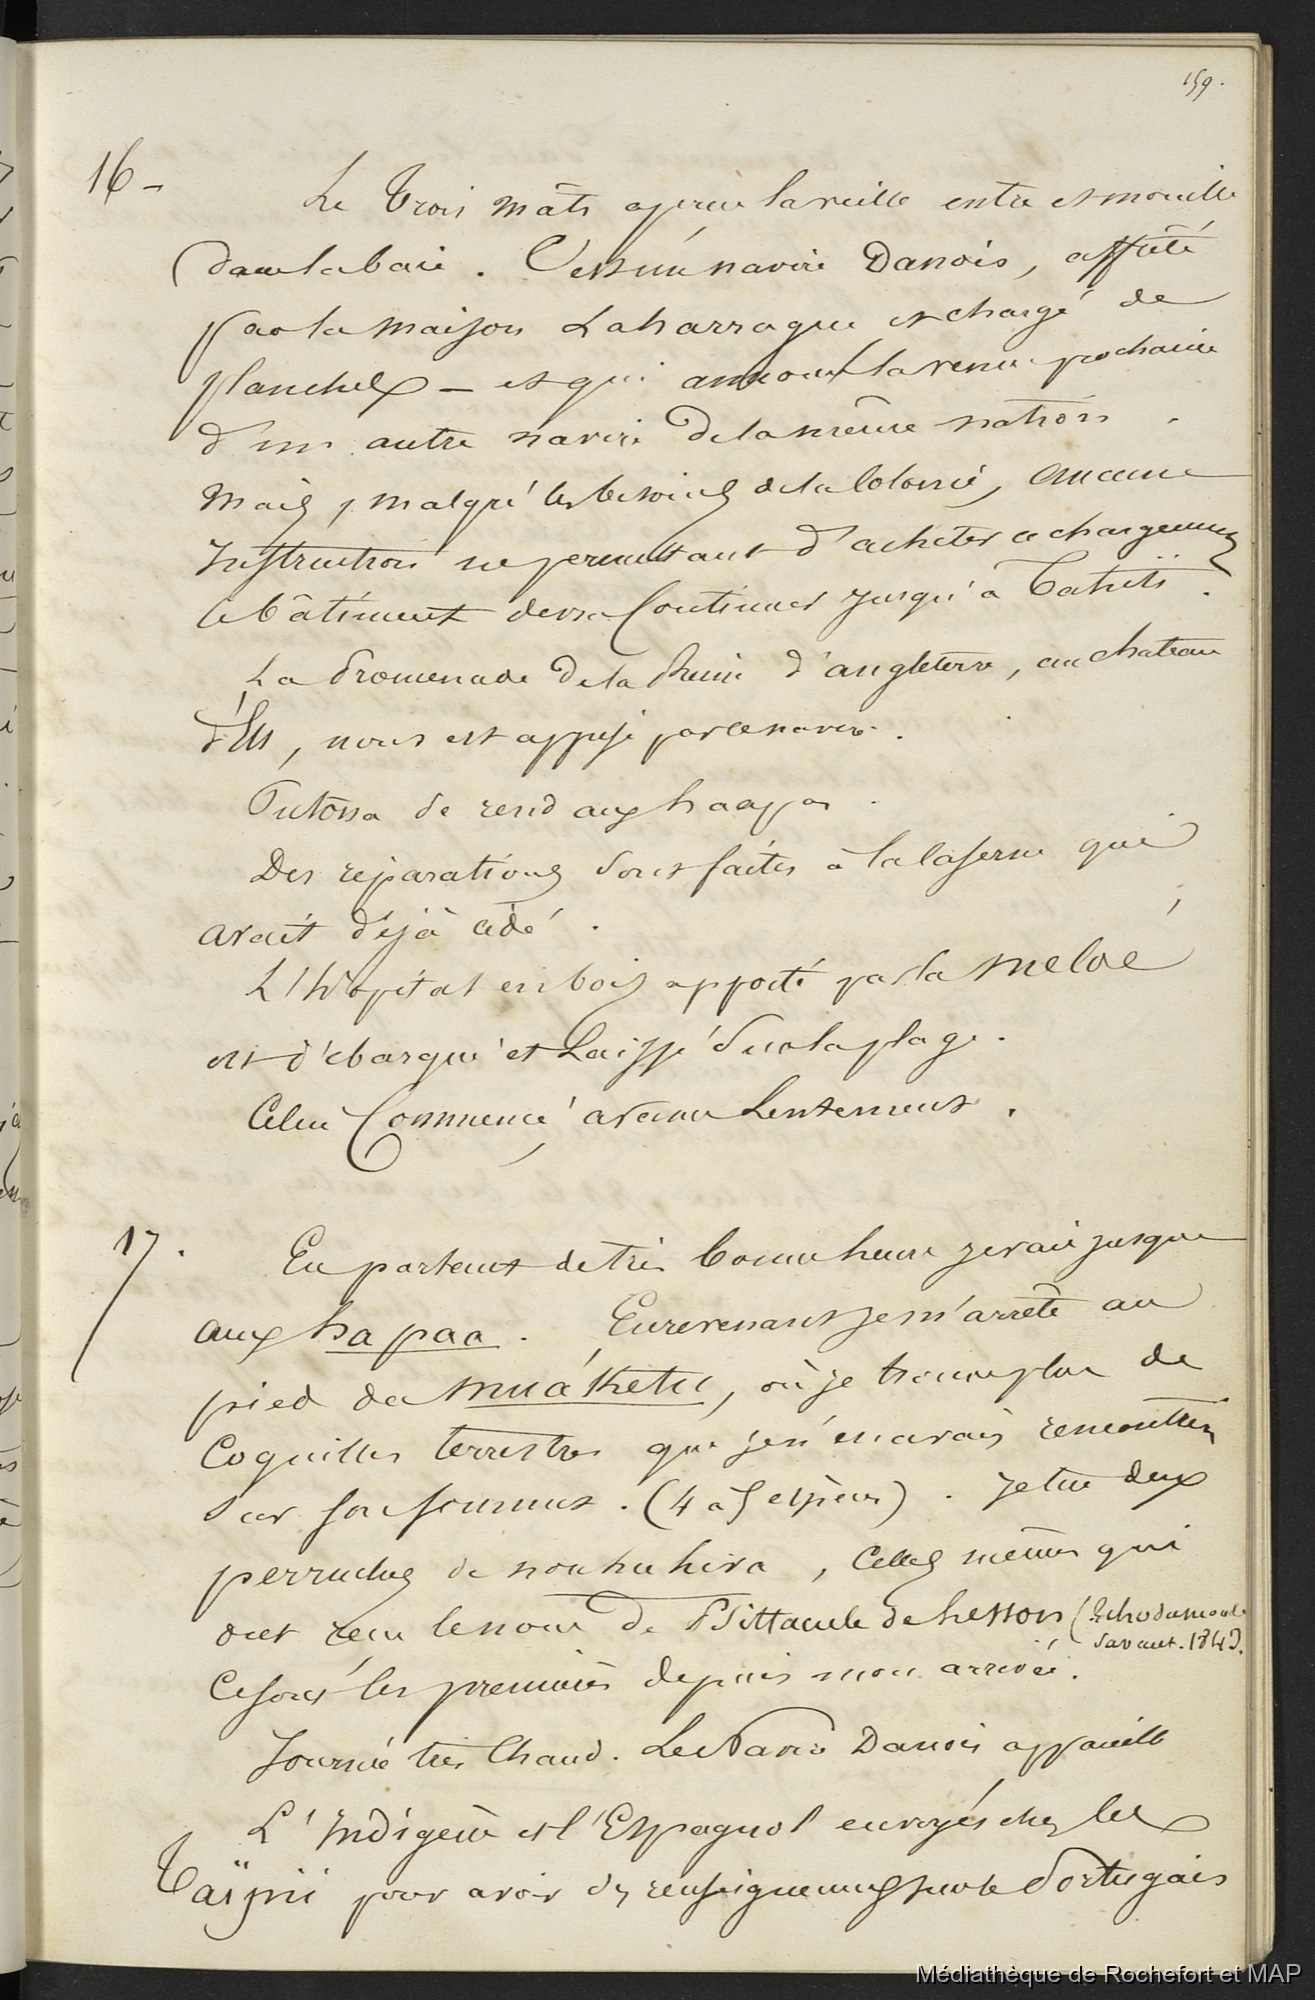 159.
16 - Le trois mâts aperçu la veille entre et mouille
dans la baie. C'est un navire Danois, affrété
par la maison Laharrague et chargé de
planches - et qui annonce la venue prochaine
d'un autre navire de la même nation.
Mais, malgré les besoins de la Colonie, aucune
instruction ne permettant d'acheter ce chargement
le bâtiment devra Continuer jusqu'à Tahiti.
La Promenade de la Reine d'angleterre, au chateau
d'Eu, nous est apprise par ce navire.
se rend aux haapa.
Des réparations sont faites à la Caserne qui
avait déjà cédé.
L'hôpital en bois apporté par la Meloé
est débarqué et Laissé sur la plage.
Celui Commencé avance Lentement.
17. En partant de très bonne heure je vais jusque
aux hapaa. En revenant je m'arrête au
pied du Muáketu, où je trouve plus de
Coquilles terrestres que je n'en avais rencontrées
sur son sommet. (4 à 5 espèces). Je tue deux
perruches de nouhuhiva, Celles mêmes qui
ont reçu le nom de Psittacule de Lesson (Echo du monde
savant. 1843.
Ce sont les premières depuis mon arrivée.
Journée très Chaude. Le Navire Danois appareille
L'Indigène et l'Espagnol envoyés chez les
Taïpii pour avoir des renseignements sur le Portugais
Médiathèque de Rochefort et MAP